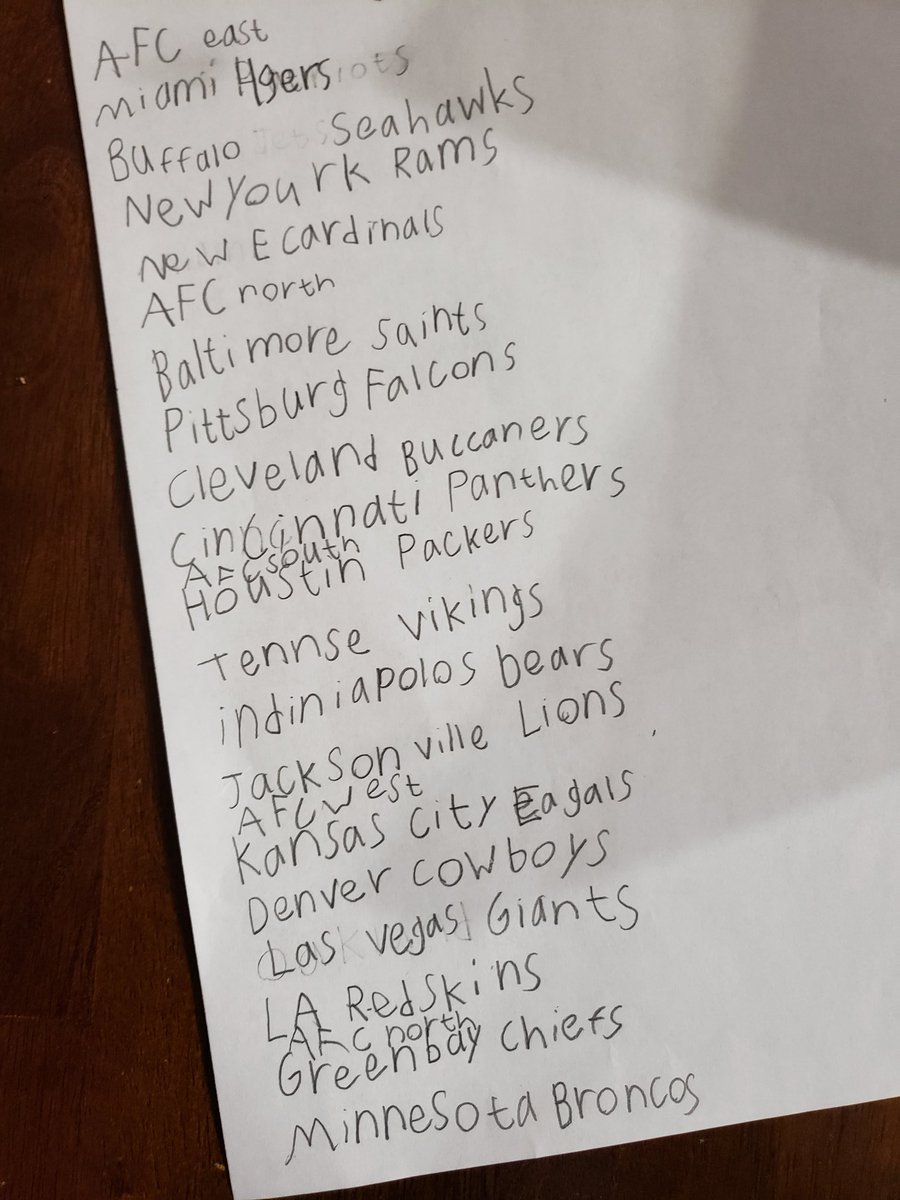 AFC east
Miami 49ers
Buffalo Seahawks
New Yourk Rams
New E cardinals
AFC north
Baltimore saints
Pittsburg Falcons
Cleveland Buccaners
Cincinnati Panthers
AFC south
Houstin Packers
Tennse vikings
indiniapolos bears
Jacksonville Lions
AFC west
Kansas city Eagals
Denver cowboys
Las vegas Giants
LA Redskins
AFC north
Greenbay chiefs
Minnesota Broncos